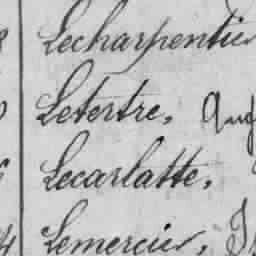 Lecharpentier
Letertre, Aug
Lecarlatte,
Lemercier,